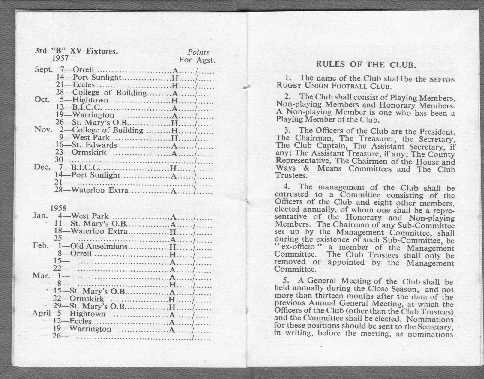 3rd "B" XV Fixtures. Points
1957 For Agst.
Sept. 7—Orrell A
14—Port Sunlight H
21—Eccles H
28 College of Building A
Oct. 5—Hightown H
12 B.I.C.C. A
19—Warrington A
26 St. Mary's O.B. H
Nov. 2—College of Building H
9 West Park H
16—St. Edwards A
23 Ormskirk A
30
Dec. 7 B.I.C.C. H
14—Port Sunlight A
21
28—Waterloo Extra A
1958
Jan. 4—West Park A
11 St. Mary's O.B. A
18—Waterloo Extra H
25
Feb. 1—Old Anselmians H
8—Orrell H
15—
22
Mar. 1—
8
15—St. Mary's O.B. A
22 Ormskirk H
29—St. Mary's O.B. H
April 5 Hightown A
12—Eccles A
19 Warrington A
26—
RULES OF THE CLUB.
1. The name of the Club shall be the SEFTON
RUGBY UNION FOOTBALL CLUB.
2. The Club shall consist of Playing Members,
Non-playing Members and Honorary Members.
A Non-playing Member is one who has been a
Playing Member of the Club.
3. The Officers of the Club are the President,
The Chairman, The Treasurer, the Secretary,
The Club Captain, The Assistant Secretary, if
any; The Assistant Treasurer, if any; The County
Representative, The Chairmen of the House and
Ways & Means Committees and The Club
Trustees.
4. The management of the Club shall be
entrusted to a Committee consisting of the
Officers of the Club and eight other members,
elected annually, of whom one shall be a repre-
sentative of the Honorary and Non-playing
Members. The Chairman of any Sub-Committee
set up by the Management Committee, shall
during the existence of such Sub-Committee, be
"ex-officio" a member of the Management
Committee. The Club Trustees shall only be
removed or appointed by the Management
Committee.
5. A General Meeting of the Club shall be
held annually during the Close Season, and not
more than thirteen months after the date of the
previous Annual General Meeting, at which the
Officers of the Club (other than the Club Trustees)
and the Committee shall be elected. Nominations
for these positions should be sent to the Secretary,
in writing, before the meeting, as nominations